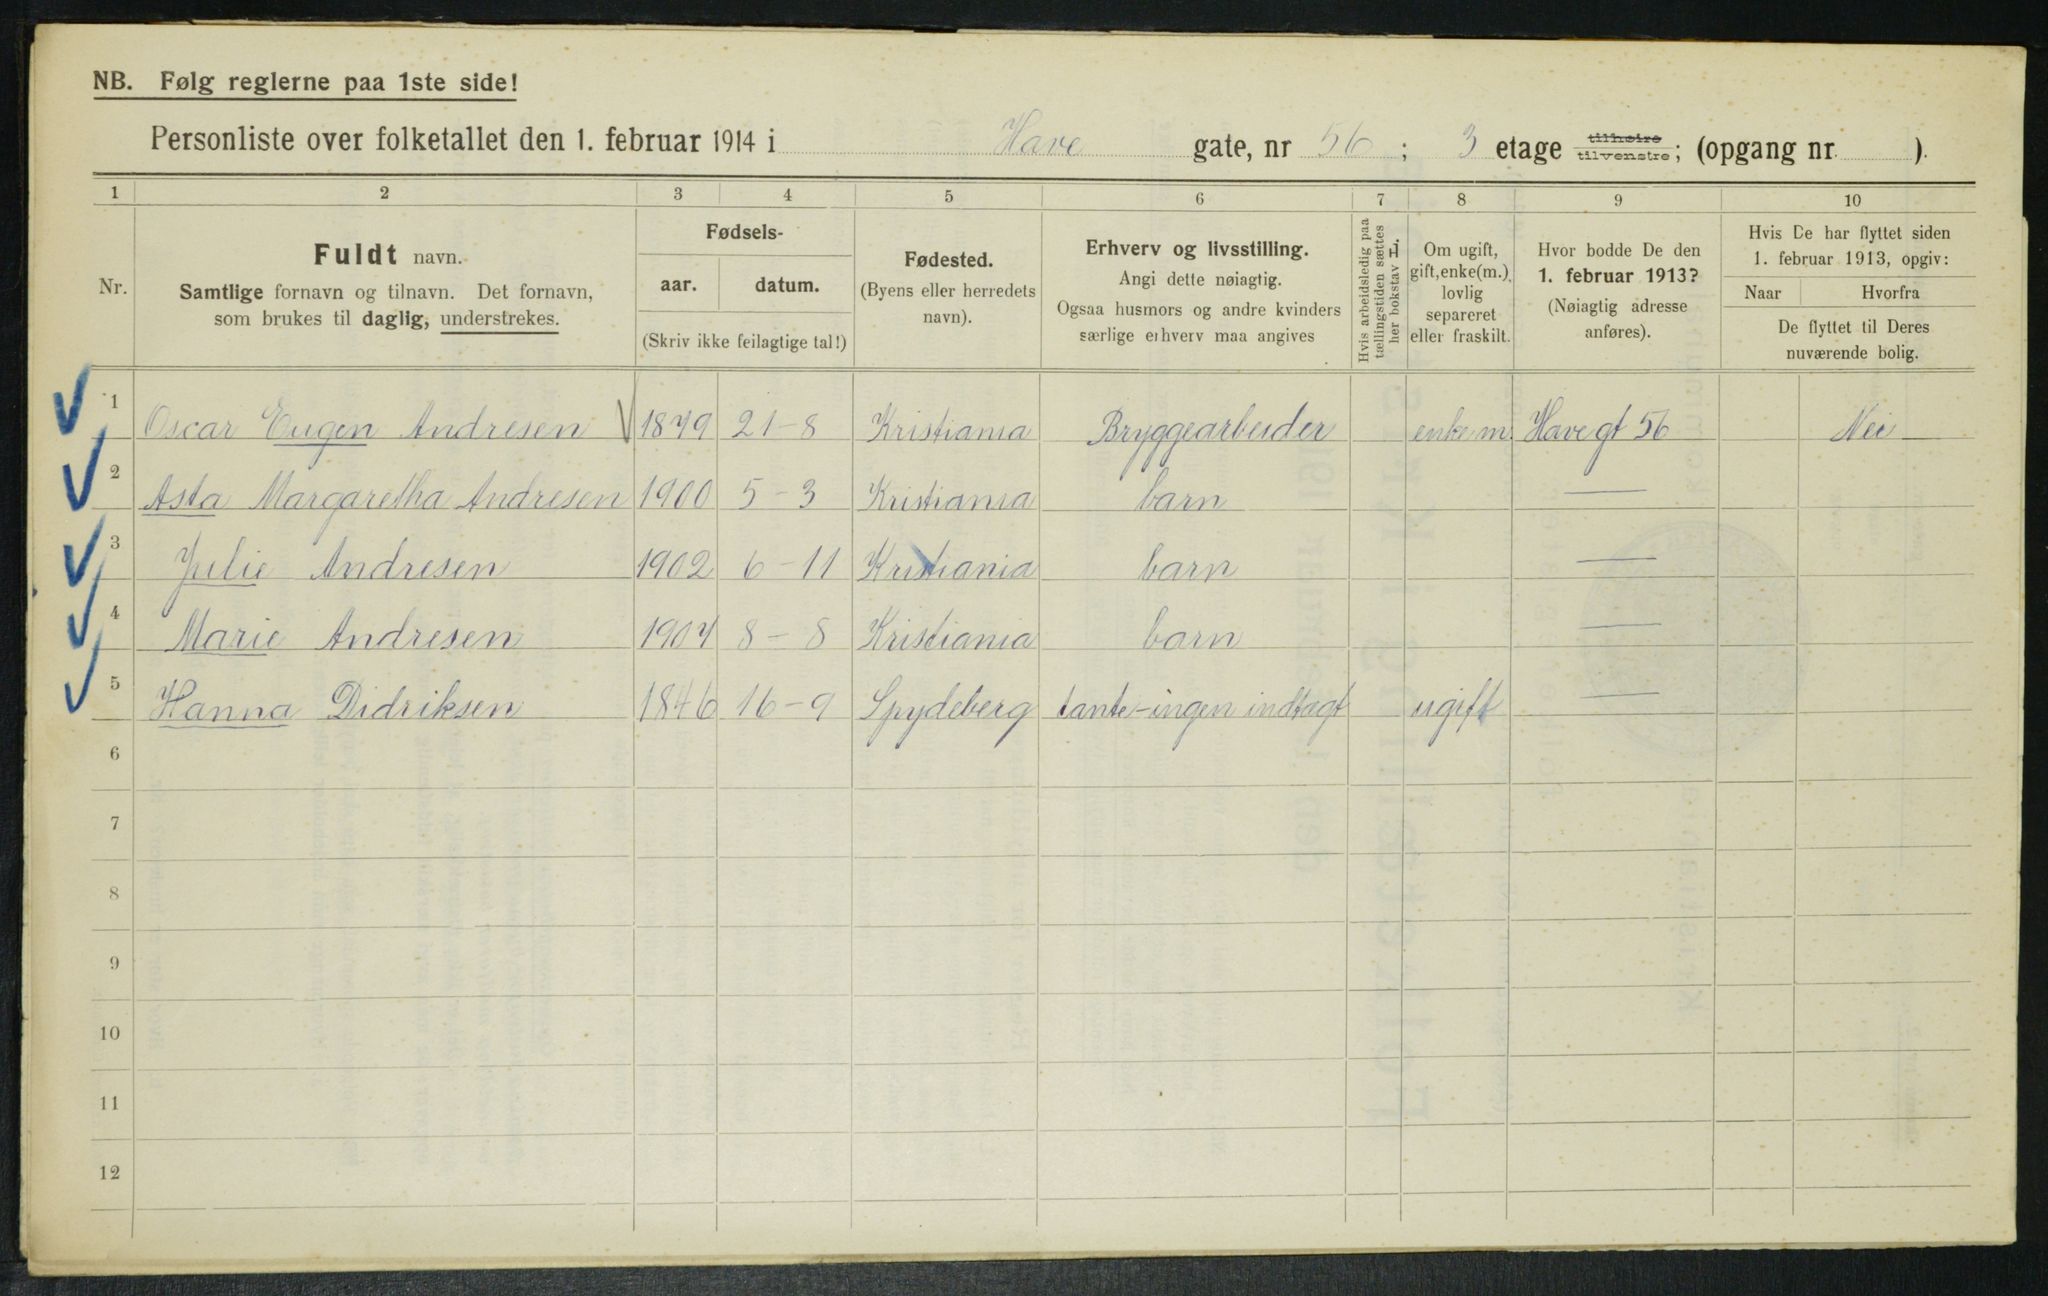 NB. Følg reglerne paa 1ste side!
Personliste over folketallet den 1. februar 1914 i Have gate, nr 56 ; 3 etage tilhøire tilvenstre; (opgang nr. ).
1 2 3 4 5 6 7 8 9 10
Nr.
Fuldt navn.
Samtlige fornavn og tilnavn. Det fornavn,
som brukes til daglig, understrekes.
Fødsels-
aar. datum.
(Skriv ikke feilagtige tal!)
Fødested.
(Byens eller herredets
navn).
Erhverv og livsstilling.
Angi dette nøiagtig.
Ogsaa husmors og andre kvinders
særlige erhverv maa angives
Hvis arbeidsledig paa
tællingstiden sættes
her bokstav L.
Om ugift,
gift, enke(m.),
lovlig
separeret
eller fraskilt.
Hvor bodde De den
1. februar 1913?
(Nøiagtig adresse
anføres).
Hvis De har flyttet siden
1. februar 1913, opgiv:
Naar Hvorfra
De flyttet til Deres
nuværende bolig.
1 Oscar Eugen Andresen 1879 21-8 Kristiania Bryggearbeider enkem. Havegt 56 Nei
2 Asta Margaretha Andresen 1900 5-3 Kristiania barn —
3 Julie Andresen 1902 6-11 Kristiania barn —
4 Marie Andresen 1904 8-8 Kristiania barn —
5 Hanna Didriksen 1846 16-9 Spydeberg tante-ingen indtægt ugift —
6
7
8
9
10
11
12